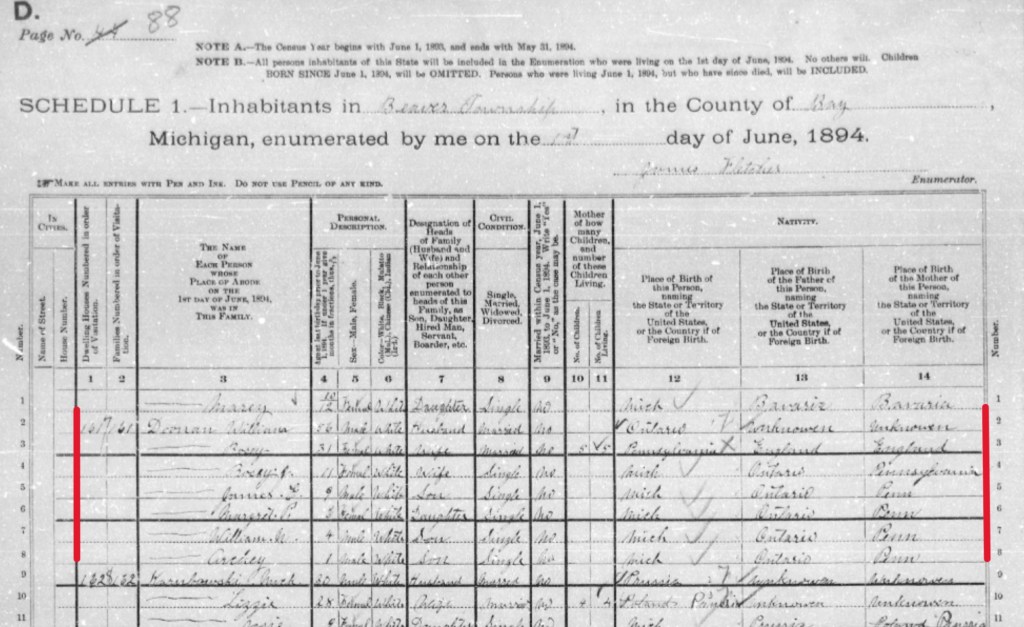 D.
Page No. 88
NOTE A.—The Census Year begins with June 1, 1893, and ends with May 31, 1894.
NOTE B.—All persons inhabitants of this State will be included in the Enumeration who were living on the 1st day of June, 1894. No others will. Children
BORN SINCE June 1, 1894, will be OMITTED. Persons who were living June 1, 1894, but who have since died, will be INCLUDED.
SCHEDULE 1.—Inhabitants in Beaver Township, in the County of Bay,
Michigan, enumerated by me on the 1st day of June, 1894.
James Fletcher
MAKE ALL ENTRIES WITH PEN AND INK. DO NOT USE PENCIL OF ANY KIND. Enumerator.
Number.
IN CITIES.
Name of Street.
House Number.
Dwelling Houses Numbered in order of Visitation.
Families Numbered in order of Visitation.
THE NAME
OF
EACH PERSON
WHOSE
PLACE OF ABODE
ON THE
1ST DAY OF JUNE, 1894,
WAS IN
THIS FAMILY.
PERSONAL
DESCRIPTION.
Sex—Male, Female.
Designation of
Heads
of Family
(Husband and
Wife) and
Relationship
of each other
person
enumerated to
heads of this
Family, as
Son, Daughter,
Hired Man,
Servant,
Boarder, etc.
CIVIL
CONDITION.
Single,
Married,
Widowed,
Divorced.
Married within Census year, June 1, 1893, to June 1, 1894. Write "Yes" or "No," as the case may be.
Mother
of how
many
Children,
and
number
of these
Children
Living.
No. of Children.
No. of Children Living.
NATIVITY.
Place of Birth of
this Person,
naming
the State or Territory
of the
United States,
or the Country if of
Foreign Birth.
Place of Birth of
the Father of
this Person,
naming
the State or Territory
of the
United States,
or the Country if of
Foreign Birth.
Place of Birth of
the Mother of
this Person,
naming
the State or Territory
of the
United States,
or the Country if of
Foreign Birth.
Number.
1 2 3 4 5 6 7 8 9 10 11 12 13 14
1 10/12 Female White Daughter Single No Mich Bavaria Bavaria 1
2 Doonan William 36 Male White Husband Married No Ontario Unknowen Unknowen 2
3 31 Female White Wife Married No 5 5 Pennsylvania England England 3
4 11 Female White Wife Single No Mich Ontario Pennsylvania 4
5 James 9 Male White Son Single No Mich Ontario Penn 5
6 Margret Female White Daughter Single No Mich Ontario Penn 6
7 William 4 Male White Son Single No Mich Ontario Penn 7
8 Archey 1 Male White Son Single No Mich Ontario Penn 8
9 132 132 30 Male White Husband Married No Prussia Unknowen Unknowen 9
10 Lizzie 28 Female White Wife Married No 4 4 Poland Unknowen Unknowen 10
11 Female White Daughter Single No Mich Prussia Poland Prussia 11